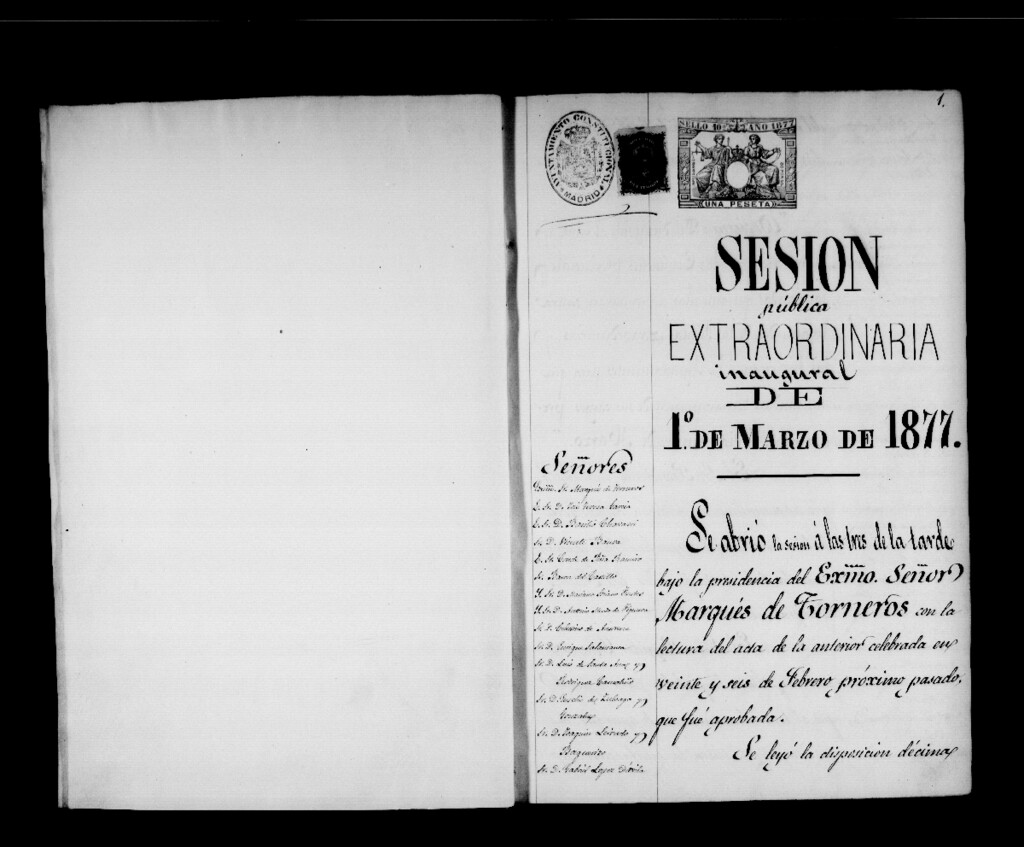 1.
AYUNTAMIENTO CONSTITUCIONAL
MADRID
SELLO 10º AÑO 1877
UNA PESETA
SESION
pública
EXTRAORDINARIA
inaugural
DE
1º. DE MARZO DE 1877.
Señores
Excmo. Sr. Marqués de Torneros
Sr. D. José García
Sr. D. Basilio Chavarri
Sr. D. Vicente
Sr. Conde de Peña Ramiro
Sr. Baron del Castillo
Sr. D. Mariano Soriano Fuertes
Sr. D. Antonio de Figueroa
Sr. D. de
Sr. D. Enrique Salamanca
Sr. D. Luis de y
Rodriguez Camaleño
Sr. D. de Zuloaga y
Gonzalez
Sr. D. Joaquin y
Sr. D. Gabriel Lopez Dávila
Se abrió la sesion á las tres de la tarde
bajo la presidencia del Exmo. Señor
Marqués de Torneros con la
lectura del acta de la anterior celebrada en
veinte y seis de Febrero próximo pasado,
que fué aprobada.
Se leyó la disposicion décima